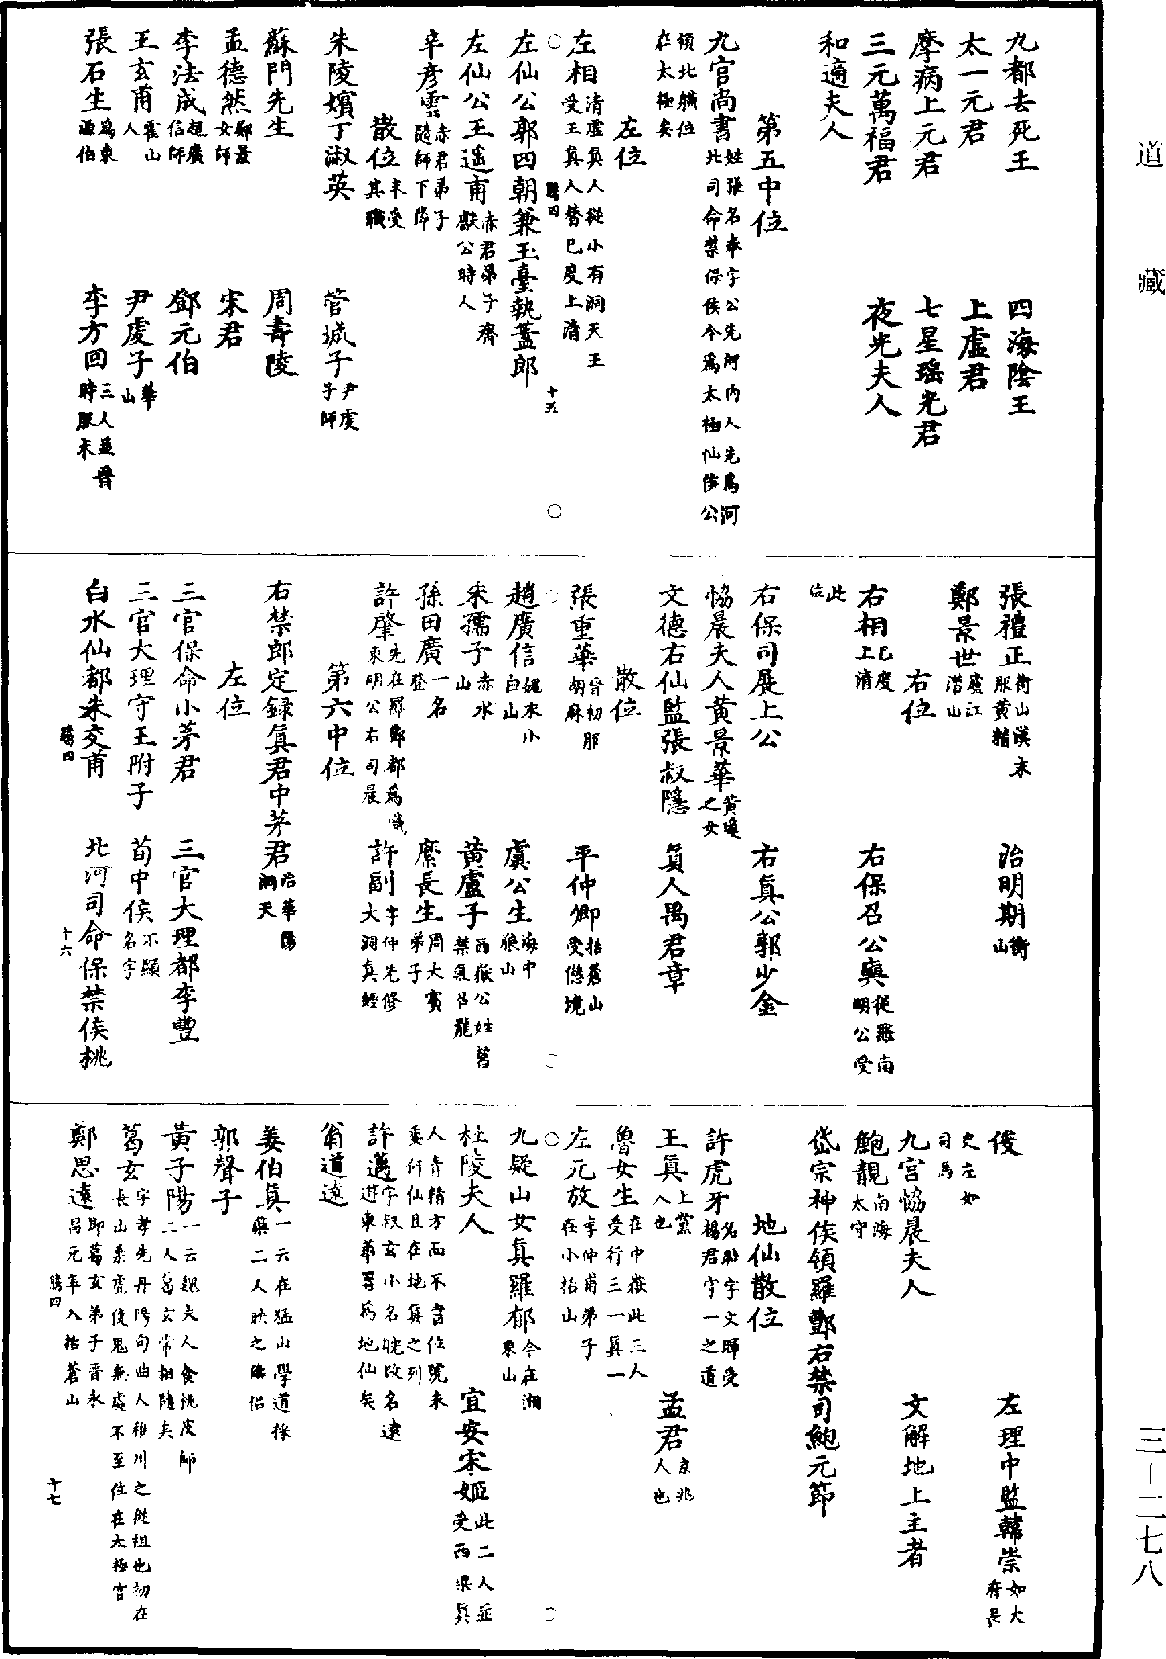 道藏
三—二七八
九都去死王　四海陰王
太一元君　上虛君
摩病上元君　七星瑤光君
三元萬福君　夜光夫人
和適夫人
第五中位
九宮尚書 姓張名奉字公先河內人先爲河北司命禁保侯今爲太極仙侯公領北職位在太極矣
左位
左相 清虛真人從小有洞天王受王真人替已度上清
左仙公郭四朝兼玉臺執蓋郎
左仙公王遙甫 赤君弟子齊獻公時人
辛彥雲 赤君弟子隨師下降
散位 未受其職
朱陵嬪丁淑英　管城子 尹虔子師
蘇門先生　周壽陵
孟德然 鄭景女師　宋君
李法成 趙廣信師　鄧元伯
王玄甫 霍山人　尹虔子 華山
張石生 爲東源伯　李方回 三人並晉時服朮
張禮正 衡山漢末服黃精　治明期 衡山
鄭景世 廬江潛山
右位
右相 已度上清　右保召公奭 從 南明公受此位
右保司展上公　右真公郭少金
協晨夫人黃景華 黃瓊之女
文德右仙監張叔隱　真人禺君章
散位
張重華 晉初服胡麻　平仲卿 括蒼山受 境
趙廣信 魏末小白山　虞公生 海中狼山
朱孺子 赤水山　黃盧子 西嶽公姓葛禁氣召龍
孫田廣 一名登　縻長生 周大賓弟子
許肇 先在酆都爲 東明公右司晨　許副 字仲先修大洞真經
第六中位
右禁郎定錄真君中茅君 治華陽洞天
左位
三官保命小茅君　三官大理都李豐
三官大理守王附子　荀中侯 不顯名字
白水仙都朱交甫　北河司命保禁侯桃
俊　左理中監韓崇 如大府長史左如司馬
九宮協晨夫人　文解地上主者
鮑靚 南海太守
岱宗神侯領羅酆右禁司鮑元節
地仙散位
許虎牙 名聯字文暉受楊君守一之道
王真 上黨人也　孟君 京兆人也
魯女生 在中嶽此三人受行三一真一
左元放 李仲甫弟子在小括山
九疑山女真羅郁 今在湘東山
杜陵夫人　宜安宋姬 此二人並受西梁真人青精方而不書位號未委何仙且在地真之列
許邁 字叔玄小名映改名遠遊東華署爲地仙矣
翁道遠
姜伯真 一云在猛山學道採藥二人
郭聲子
黃子陽 一云魏夫人食桃皮師二人葛玄常相隨矣
葛玄 字孝先丹陽句曲人稚川之從祖也初在長山乘虎使鬼無處不至位在太極宮
鄭思遠 即葛玄弟子晉永昌元年入括蒼山
勝四　十五
勝四　十六
勝四　十七